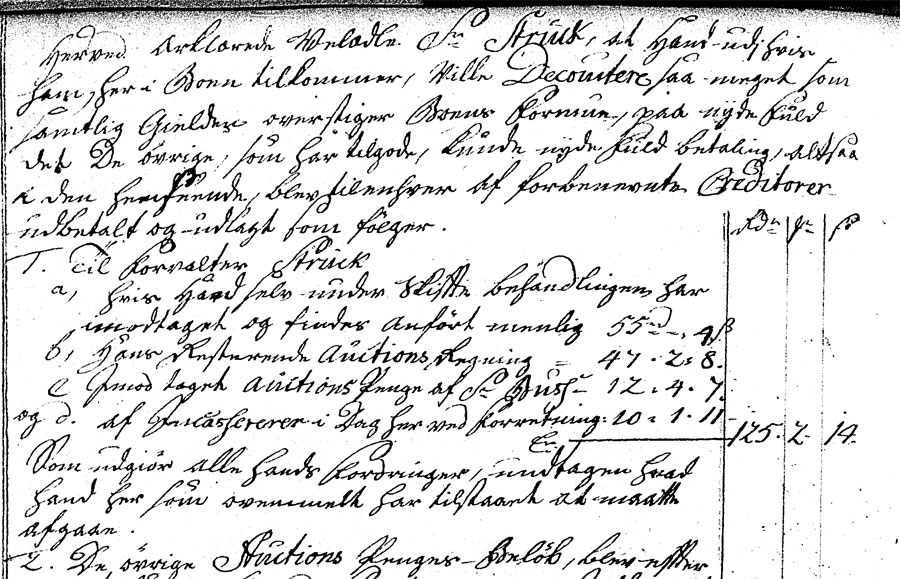 Herved Erklærede Velædle Sr Struck, at Hand udj hvis
ham her i Boen tilkommer, Ville Decoutere saa meget som
samtlig Gielden overstiger Boens Formue, paa nyde fuld
det De øvrige, som har tilgode, kunde nyde fuld betaling, altsaa
i den henseende, blev tilenhver af forbenevnte Creditorer
udbetalt og udlagt som følger.
Rdr ȝ ß
1. Til Forvalter Struck
a, hvis Hand selv under Skifte behandlingen har
imodtaget og findes anført menlig 55rd - 4ß
b, Hans Resterende Auctions Regning = 47 - 2 : 8.
c Imodtaget Auctions Penge af Sr Bush - 12. 4. 7.
og d. af Incasserer i Dag her ved Forretning: 10 : 1. 11 125. 2. 14.
Som udgiør alle hands Fordringer, undtagen hvad
hand her som ovenmelt har tilstaaet at maatte
afgaae.
2. De øvrige Auctions Penges Beløb, blev efter